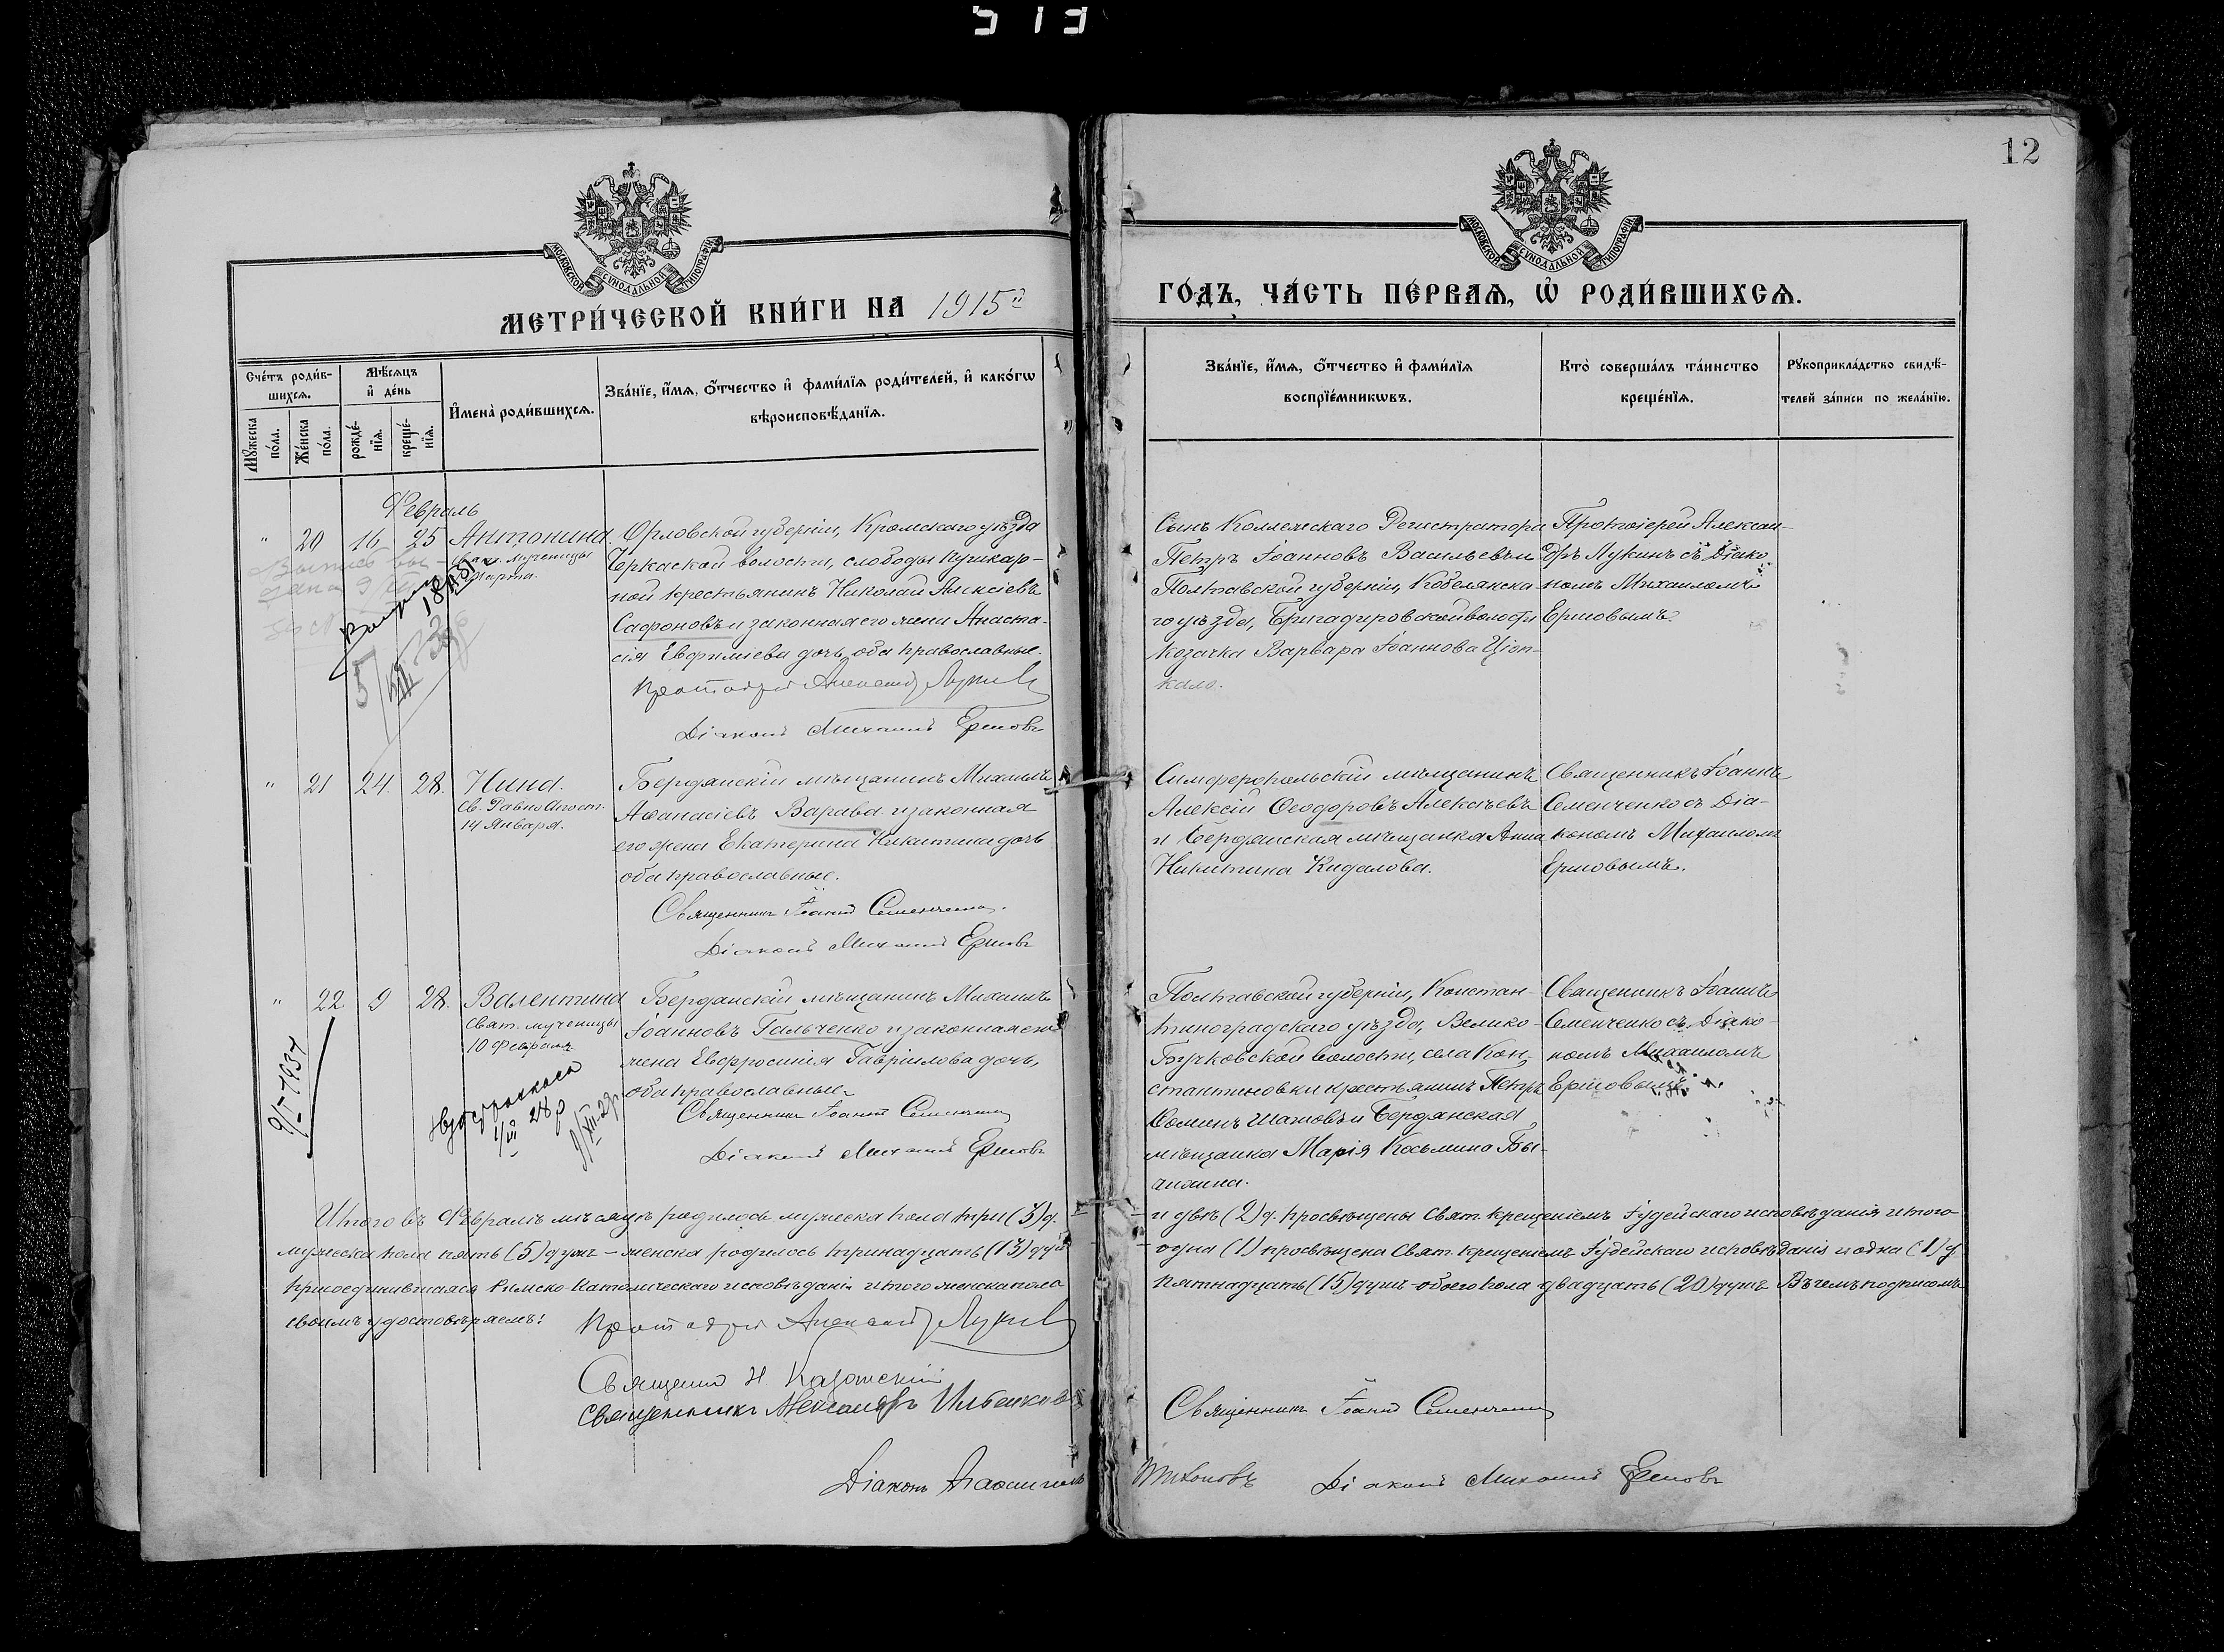 513
12
МОСКОВСКОЙ СѴНОДАЛЬНОЙ ТИПОГРАФІИ
МОСКОВСКОЙ СѴНОДАЛЬНОЙ ТИПОГРАФІИ
МЕТРИ́ЧЕСКОЙ КНИ́ГИ НА 1915й
ГО́ДЪ, ЧА́СТЬ ПЕ́РВАѦ, Ѡ҆ РОДИ́ВШИХСѦ.
Сче́тъ роди́в-
шихсѧ.
Мѣ́сяцъ
и҆ де́нь
Мꙋ́жеска по́ла.
Же́нска по́ла.
рожде́-
нїѧ.
креще́-
нїѧ.
И҆мена̀ роди́вшихсѧ.
Зва́нїе, и҆́мѧ, ѻ҆́тчество и҆ фами́лїѧ роди́телей, и҆ како́гѡ
вѣроисповѣ́данїѧ.
Зва́нїе, и҆́мѧ, ѻ҆́тчество и҆ фами́лїѧ
воспрїе́мникѡвъ.
Кто̀ соверша́лъ та́инство
креще́нїѧ.
Рꙋкоприкла́дство свидѣ́-
телей за́писи по жела́нїю.
Февраль
" 20 16 25 Антонина
мученицы
1 Марта.
Орловской губерніи, Кромскаго уѣзда
Черкаской волости, слободы Пушкар-
ной крестьянинъ Николай Алексіевъ
Сафоновъ и законная его жена Анаста-
сія Евфиміева дочь, оба православные.
Протоіерей Александръ Лукинъ
Діаконъ Михаилъ Ершовъ
Сынъ Коллежскаго Регистратора
Петръ Іоанновъ Васильевъ и
Полтавской губерніи, Кобелякска-
го уѣзда, Бригадировской волости
козачка Варвара Іоаннова Ціоп-
кало.
Протоіерей Алексан-
дръ Лукинъ съ Діако-
номъ Михаиломъ
Ершовымъ.
" 21 24. 28. Нина.
Св. РавноАпост.
14 Января.
Бердянскій мѣщанинъ Михаилъ
Аѳанасіевъ Варава и законная
его жена Екатерина Никитина дочь
оба православные.
Священникъ Іоаннъ Семенченко.
Діаконъ Михаилъ Ершовъ
Симферопольскій мѣщанинъ
Алексій Ѳеодоровъ Алексѣевъ
и Бердянская мѣщанка Анна
Никитина Кидалова.
Священникъ Іоаннъ
Семенченко съ Діа-
кономъ Михаиломъ
Ершовымъ.
" 22 9 28. Валентина
Свят. мученицы
10 Февраля
9/I-1937
Бердянскій мѣщанинъ Михаилъ
Іоанновъ Гальченко и законная его
жена Евфросинія Гавріилова дочь,
оба православные.
Священникъ Іоаннъ Семенченко
Діаконъ Михаилъ Ершовъ
Полтавской губерніи, Констан-
тиноградскаго уѣзда, Велико-
Бучковской волости, села Кон-
стантиновки крестьянинъ Петръ
Ѳоминъ Шатовъ и Бердянская
мѣщанка Марія Косьмина
Священникъ Іоаннъ
Семенченко съ Діако-
номъ Михаиломъ
Ершовымъ.
Итого въ Февралѣ мѣсяцѣ родилось мужеска пола три (3) д.
и двѣ (2) д. просвѣщены Свят. крещеніемъ Іудейскаго исповѣданія итого
мужеска пола пять (5) душъ – женска родилось тринадцать (13) душъ
одна (1) просвѣщена Свят. крещеніемъ Іудейскаго исповѣданія и одна (1) д.
присоединившаяся Римско-Католическаго исповѣданія итого женска пола
пятнадцать (15) душъ обоего пола двадцать (20) душъ Въ чемъ подписомъ
своимъ удостовѣряемъ:
Протоіерей Александръ Лукинъ
Священникъ Н. Казанскій
Священникъ Александръ Ильенковъ
Священникъ Іоаннъ Семенченко
Діаконъ Тихоновъ
Діаконъ Михаилъ Ершовъ